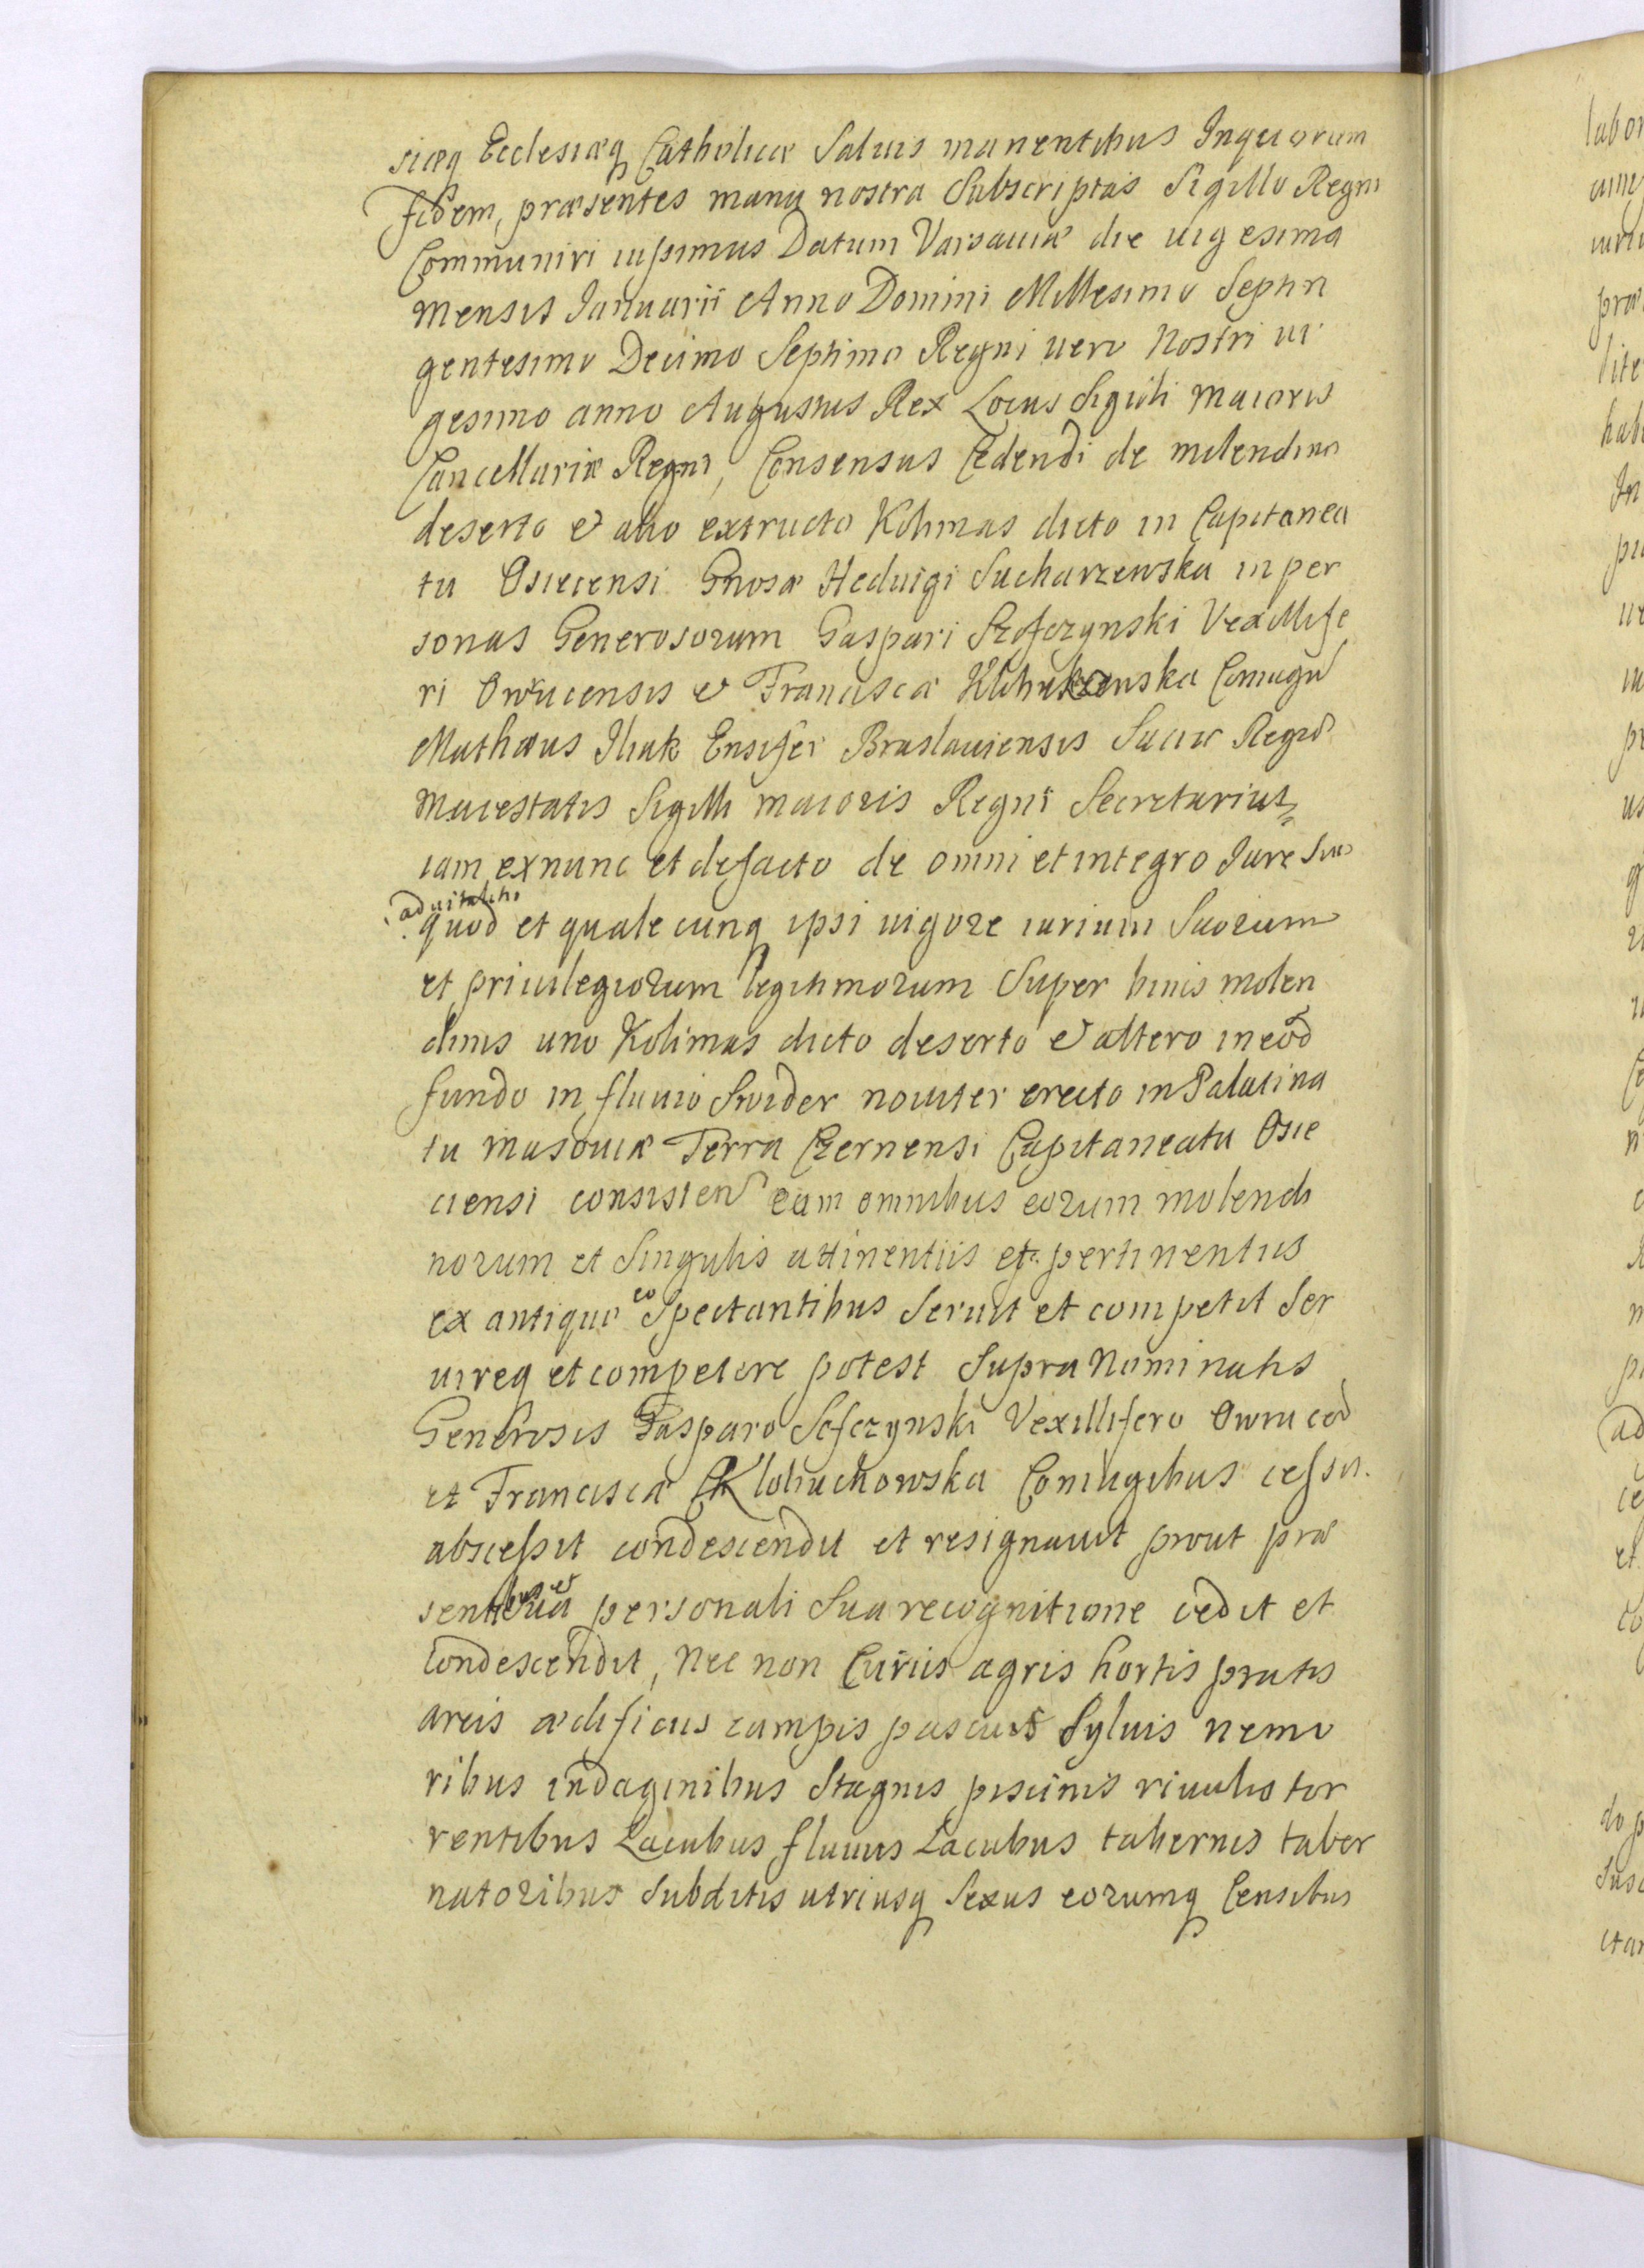 sicæq Ecclesiæq Catholicæ Saluis manentibus Inquorum
fidem, præsentes manu nostra Subscriptas Sigillo Regni
Communiri iussimus Datum Varsauiæ die uigesima
mensis Januarii Anno Domini Millesimo Septin
gentesimo Decimo Septimo Regni uero Nostri ui
gesimo anno Augustus Rex Locus Sigilli maioris
Cancellariæ Regni, Consensus Cedendi de molendino
deserto et alio extructo Kolimas dicto in Capitanea
tu Osiecensi Gnosæ Heduigi Sucharzewska in per
sonas Generosorum Gaspari Szofczynski Vexillife
ri Owrucensis et Franciscæ Coniugu
Mathæus Iliak Ensifer Braslauiensis Sacræ Regiæ
Maiestatis Sigilli maioris Regni Secretarius
iam exnunc et defacto de omni et integro Jure Suo
aduitalitio
quod et qualecunq ipsi uigore iurium Suorum
et priuilegiorum legitimorum Super binis molen
dinis uno Kolimas dicto deserto et altero in eod
fundo in fluuio Swider nouiter erecto in Palatina
tu Masouiæ Terra Czernensi Capitaneatu Osie
ciensi consisten cum omnibus eorum molendi
norum et Singulis attinentiis et pertinentiis
ex antiquo eo Spectantibus Seruit et competit Ser
uireq et competere potest Supra Nominatis
Generosis Gasparo Sofczynski Vexillifero Owruced
et Franciscæ Klobuchowska Coniugibus cessit
abscessit condescendit et resignauit prout præ
sentibus et sua personali Sua recognitione cedit et
Condescendit, Nec non Curiis agris hortis pratis
areis ædificiis campis pascuis Syluis nemo
ribus indaginibus Stagnis piscinis riuulis tor
rentibus Lacubus fluuiis Lacubus tabernis taber
natoribus Subditis utriusq Sexus eorumq Censibus